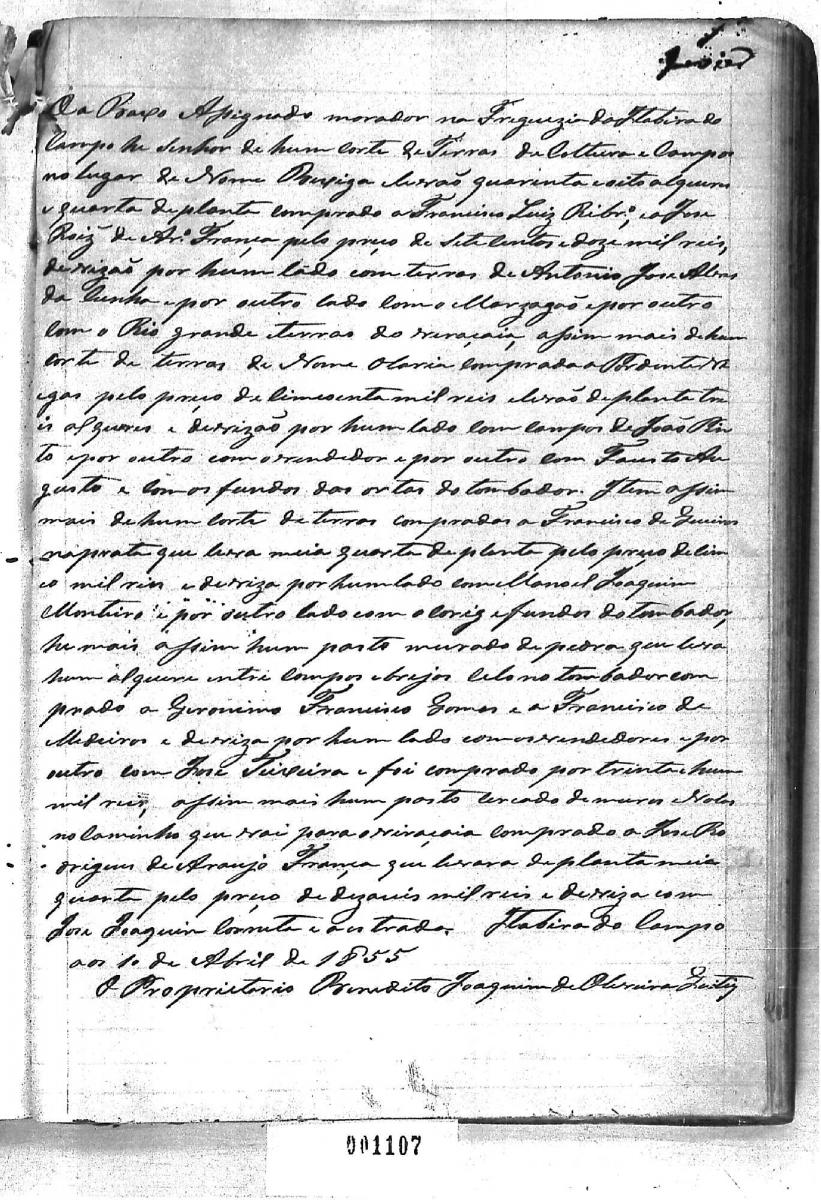 O a Baxo Assignado morador na Freguezia da Itabira do
Campo he Senhor de hum corte de Terras de Coltura e Campos
no lugar de Nome Bexiga levão quarenta e oito alqueres
e quarta de planta comprado a Francisco Luiz Ribr.º e a Jose
Roiz de Ar.º França pelo preço de Sete centos e doze mil reis,
devizão por hum lado com terras de Antonio Jose Alves
da Cunha e por outro lado com o Marzagão e por outro
com o Rio grande e terras do
assim mais de hum
corte de terras de Nome Olaria comprada a
pelo preço de simcoenta mil reis e levão de planta tre
is alqueres e devizão por hum lado com campos de João Pin
to e por outro com o vendedor e por outro com Fausto Au
gusto e com os fundos das ortas do tombador. Item assim
mais de hum corte de terras comprados a Francisco de
na prata que leva meia quarta de planta pelo preço de sin
co mil reis e deviza por hum lado com Manoel Joaquim
Monteiro e por outro lado com o e fundos do tombador,
he mais assim hum pasto murado de pedra que leva
hum alquere entre campos e brejos no tombador com
prado a Geronimo Francisco Gomes e a Francisco de
Medeiros e deviza por hum lado com os vendedores e por
outro com Jose Teixeira e foi comprado por trinta e hum
mil reis, assim mais hum pasto cercado de muros e Valos
no caminho que vai para o comprado a Jose Ro
drigues de Araujo França que levara de planta meia
quarta pelo preço de dezaseis mil reis e deviza com
Jose Joaquim Correta e a estrada. Itabira do Campo
aos 10 de Abril de 1855
O Proprietario Benedito Joaquim de Oliveira
001107